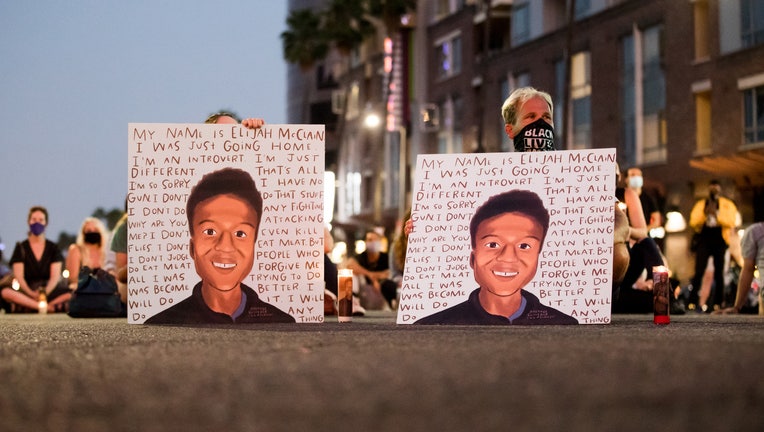 MY NAME IS ELIJAH McCLAIN
I WAS JUST GOING HOME
I'M AN INTROVERT. I'M JUST
DIFFERENT. THAT'S ALL
I'M SO SORRY I HAVE NO
GUN I DON'T DO THAT STUFF
I DON'T DO ANY FIGHTING
WHY ARE YOU ATTACKING
ME? I DON'T EVEN KILL
FLIES I DON'T EAT MEAT. BUT
I DON'T JUDGE PEOPLE WHO
DO EAT MEAT FORGIVE ME
ALL I WAS TRYING TO DO
WAS BECOME BETTER I
WILL DO IT. I WILL
DO ANY THING
BLACK
LIVES
MY NAME IS ELIJAH McCLAIN
I WAS JUST GOING HOME
I'M AN INTROVERT. I'M JUST
DIFFERENT THAT'S ALL
I'M SO SORRY I HAVE NO
GUN I DON'T DO THAT STUFF
I DON'T DO ANY FIGHTING
WHY ARE YOU ATTACKING
ME? I DON'T EVEN KILL
FLIES I DON'T EAT MEAT. BUT
I DON'T JUDGE PEOPLE WHO
DO EAT MEAT FORGIVE ME
ALL I WAS TRYING TO DO
WAS BECOME BETTER I
WILL DO IT. I WILL
DO ANY THING